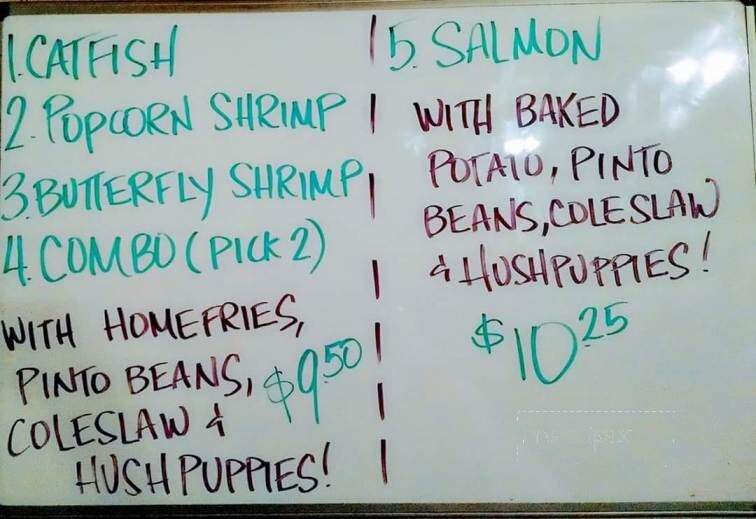 1. CATFISH
2. POPCORN SHRIMP
3. BUTTERFLY SHRIMP
4. COMBO (PICK 2)
WITH HOMEFRIES,
PINTO BEANS, $9.50
COLESLAW &
HUSHPUPPIES!
5. SALMON
WITH BAKED
POTATO, PINTO
BEANS, COLESLAW
& HUSHPUPPIES!
$10.25